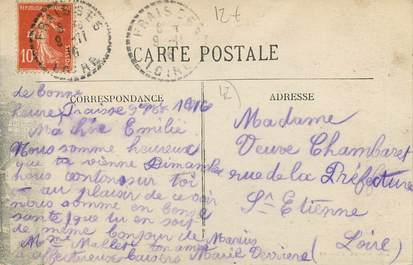 FRAISSES
LOIRE
10
12+
CARTE POSTALE
12
CORRESPONDANCE
ADRESSE
de bonne
heure Fraisse 9 1916
Ma Emilie
Nous somme heureux
que tu vienne Dimanche
nous contons sur toi
au plaisir de ce voir
nous somme en bonne
sante, que tu en soit
de même bonjour de Marius
Mme Mallet ton amie
affectueux baisers Marie
Madame
Veuve Chambaret
rue de la Préfecture
St Etienne
(Loire)